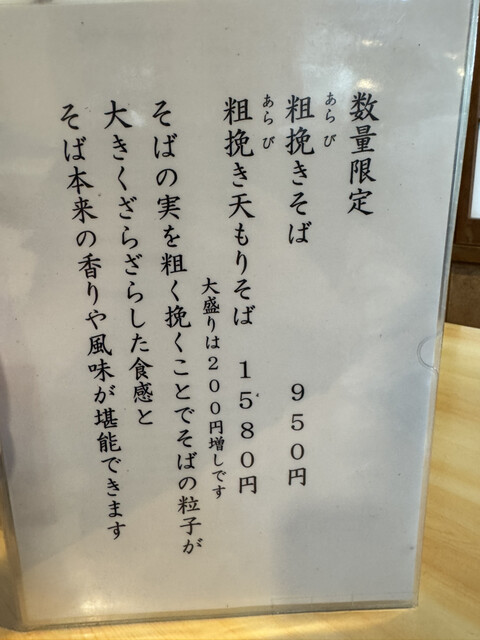 数量限定
粗挽きそば 950円
あらび
粗挽き天もりそば 1580円
あらび
大盛りは200円増しです
そばの実を粗く挽くことでそばの粒子が
大きくざらざらした食感と
そば本来の香りや風味が堪能できます